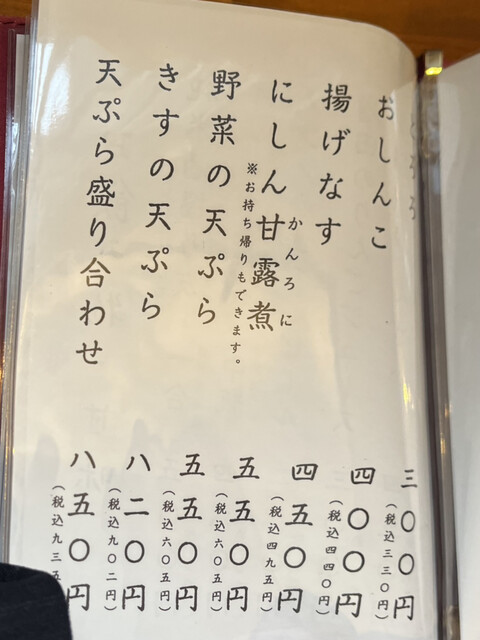 とろろ
三〇〇円
(税込三三〇円)
おしんこ
四〇〇円
(税込四四〇円)
揚げなす
四五〇円
(税込四九五円)
かんろに
にしん甘露煮
※お持ち帰りもできます。
五五〇円
(税込六〇五円)
野菜の天ぷら
五五〇円
(税込六〇五円)
きすの天ぷら
八二〇円
(税込九〇二円)
天ぷら盛り合わせ
八五〇円
(税込九三五